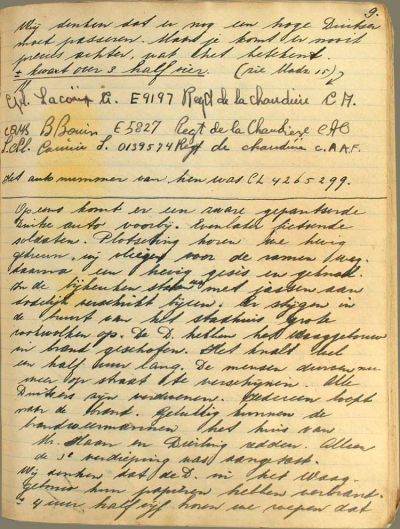 9.
Wij denken dat er nog een hoge Duitser
moet passeren. Maar je komt er nooit
precies achter, wat het betekent.
± kwart over 3 half vier. (zie bladz 15)
Cpl. Lacour G. E9197 Regt de la Chaudière C.M.
B Bouin E5827 Regt de la Chaudiere CAO
L.Cpl. S. 0139574 Regt de chaudiére C.A.A.F.
Het autonummer van hen was CL 4265299.
Opeens komt er een zware gepantserde
Duitse auto voorbij. Even later fietsende
soldaten. Plotseling horen we hevig
geknal, wij vliegen voor de ramen weg.
daarna een hevig gesis en geknal.
In de bijkeuken staan we met jassen aan
dodelijk verschrikt bijeen. Er stijgen in
de buurt van het stadhuis grote
rookwolken op. De D. hebben het Waaggebouw
in brand geschoten. Het knalt wel
een half uur lang. De mensen durven nu
meer op straat te verschijnen. Alle
Duitsers zijn verdwenen. Iedereen loopt
naar de brand. Gelukkig kunnen de
brandweermannen het huis van
Mr. Haan en redden. Alleen
de 3e verdieping was aangetast.
Wij denken dat de D. in het Waag-
gebouw hun papieren hebben verbrand.
± 4 uur, half vijf horen we roepen dat